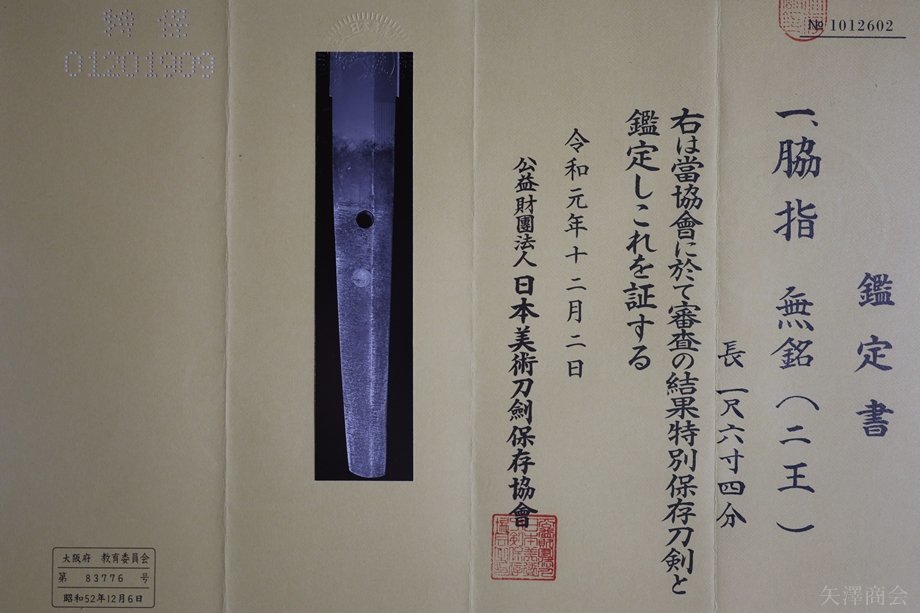 № 1012602
鑑定書
一、脇指 無銘(二王)
長 一尺六寸四分
右は當協會に於て審査の結果特別保存刀剣と
鑑定しこれを証する
令和元年十二月二日
公益財團法人 日本美術刀劍保存協會
特保
01201909
大阪府 教育委員会
第 83776 号
昭和52年12月6日
矢澤商会